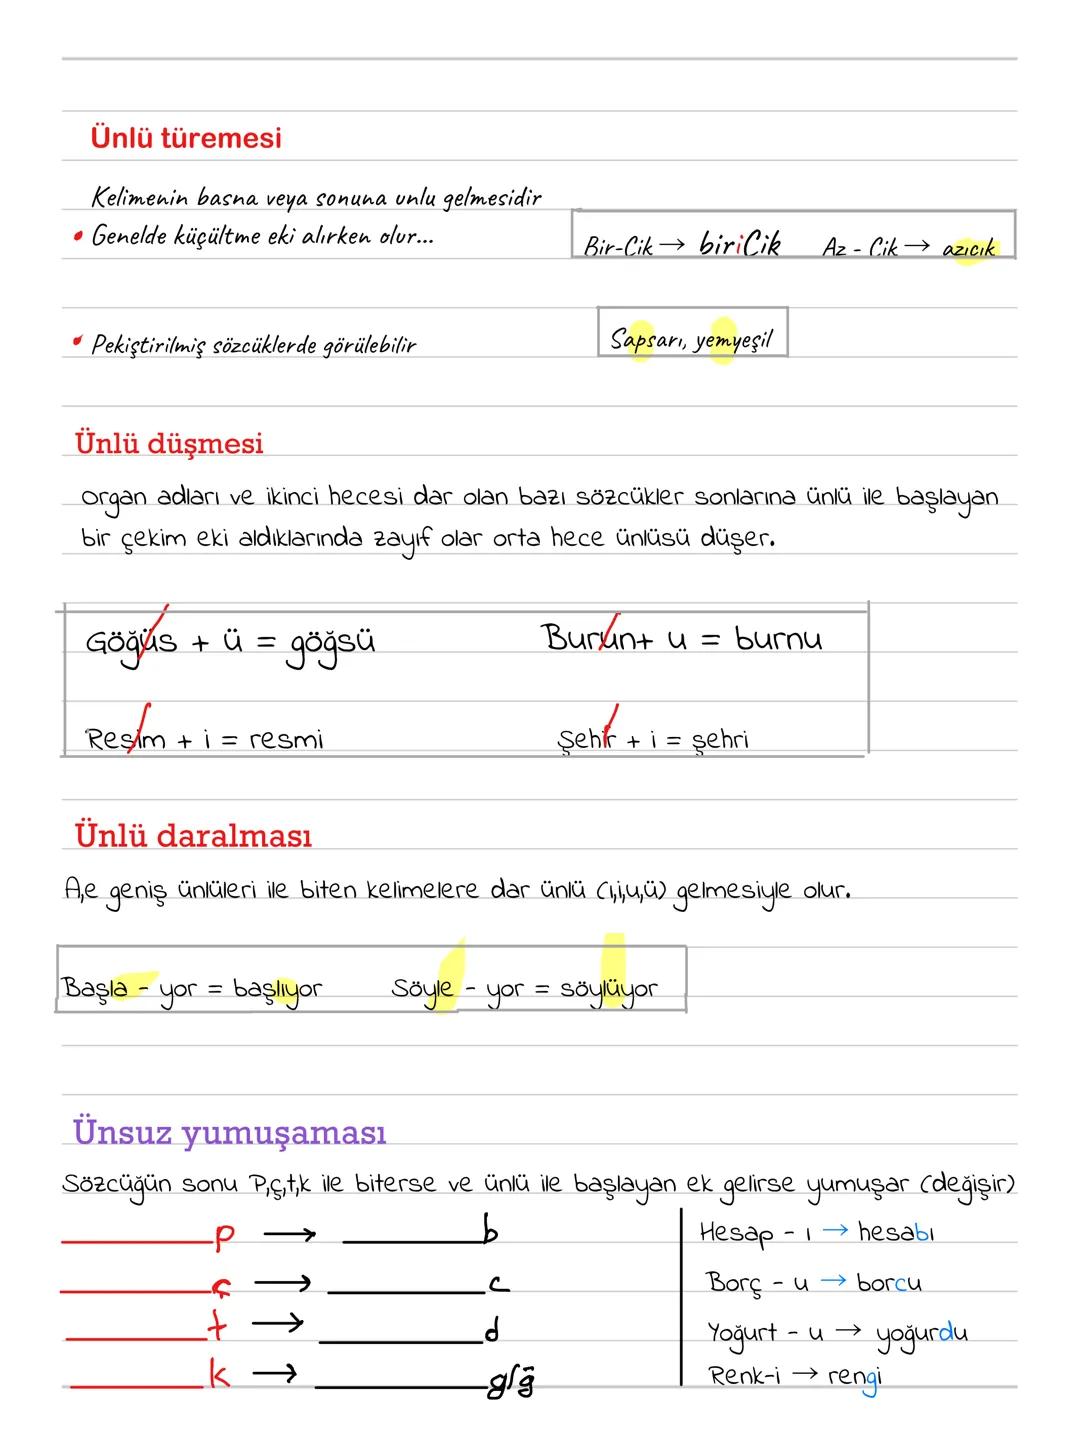 Ünlü türemesi
Kelimenin basna veya sonuna unlu gelmesidir
• Genelde küçültme eki alırken olur...
Bir-Cik → biriCik Az - Cik → azıcık
• Pekiştirilmiş sözcüklerde görülebilir
Sapsarı, yemyeşil
Ünlü düşmesi
organ adları ve ikinci hecesi dar olan bazı sözcükler sonlarına ünlü ile başlayan
bir çekim eki aldıklarında zayıf olar orta hece ünlüsü düşer.
Göğüs + ü = göğsü Burun+ u = burnu
Resim + i = resmi Şehir + i = şehri
Ünlü daralması
A,e geniş ünlüleri ile biten kelimelere dar ünlü (ı,i,u,ü) gelmesiyle olur.
Başla - yor = başlıyor Söyle - yor = söylüyor
Ünsuz yumuşaması
Sözcüğün sonu P,ç,t,k ile biterse ve ünlü ile başlayan ek gelirse yumuşar (değişir)
p → b Hesap - ı → hesabı
ç → c Borç - u → borcu
t → d Yoğurt - u → yoğurdu
k → g/ğ Renk-i → rengi